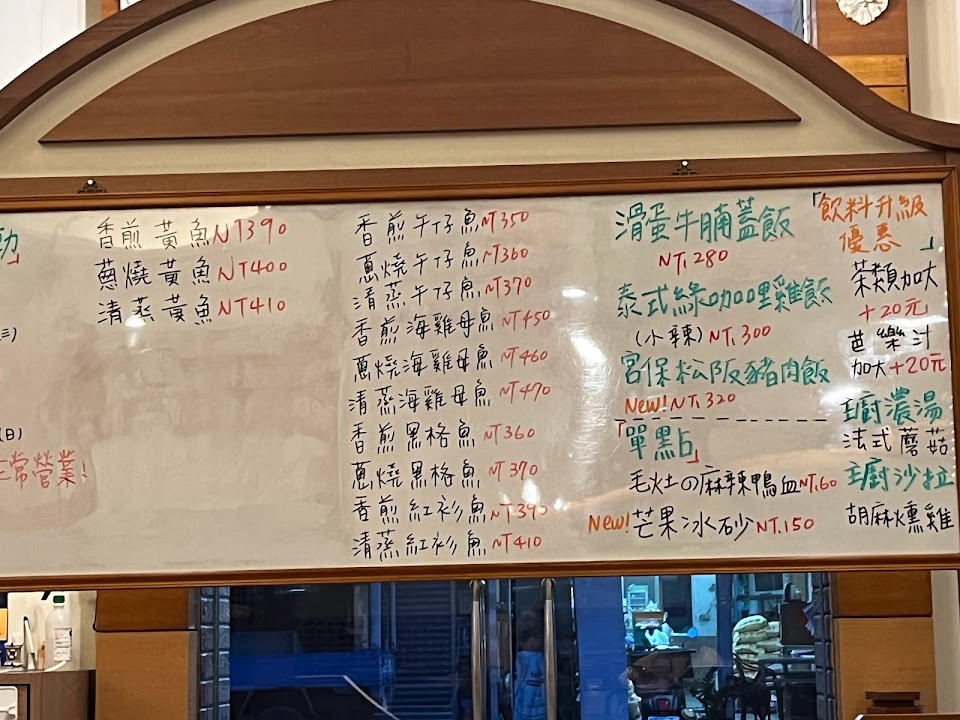 香煎黃魚NT390
蔥燒黃魚NT400
清蒸黃魚NT410
(日)
正常營業!
香煎午仔魚NT350
蔥燒午仔魚NT360
清蒸午仔魚NT370
香煎海雞母魚NT450
蔥燒海雞母魚NT460
清蒸海雞母魚NT470
香煎黑格魚NT360
蔥燒黑格魚NT370
香煎紅衫魚NT390
清蒸紅衫魚NT410
滑蛋牛腩蓋飯
NT.280
泰式綠咖哩雞飯
(小辣)NT.300
宮保松阪豬肉飯
New!NT.320
「單點」
毛灶の麻辣鴨血NT.60
New!芒果冰砂NT.150
「飲料升級
優惠」
茶類加大
+20元
芭樂汁
加大+20元
主廚濃湯
法式蘑菇
主廚沙拉
胡麻燻雞